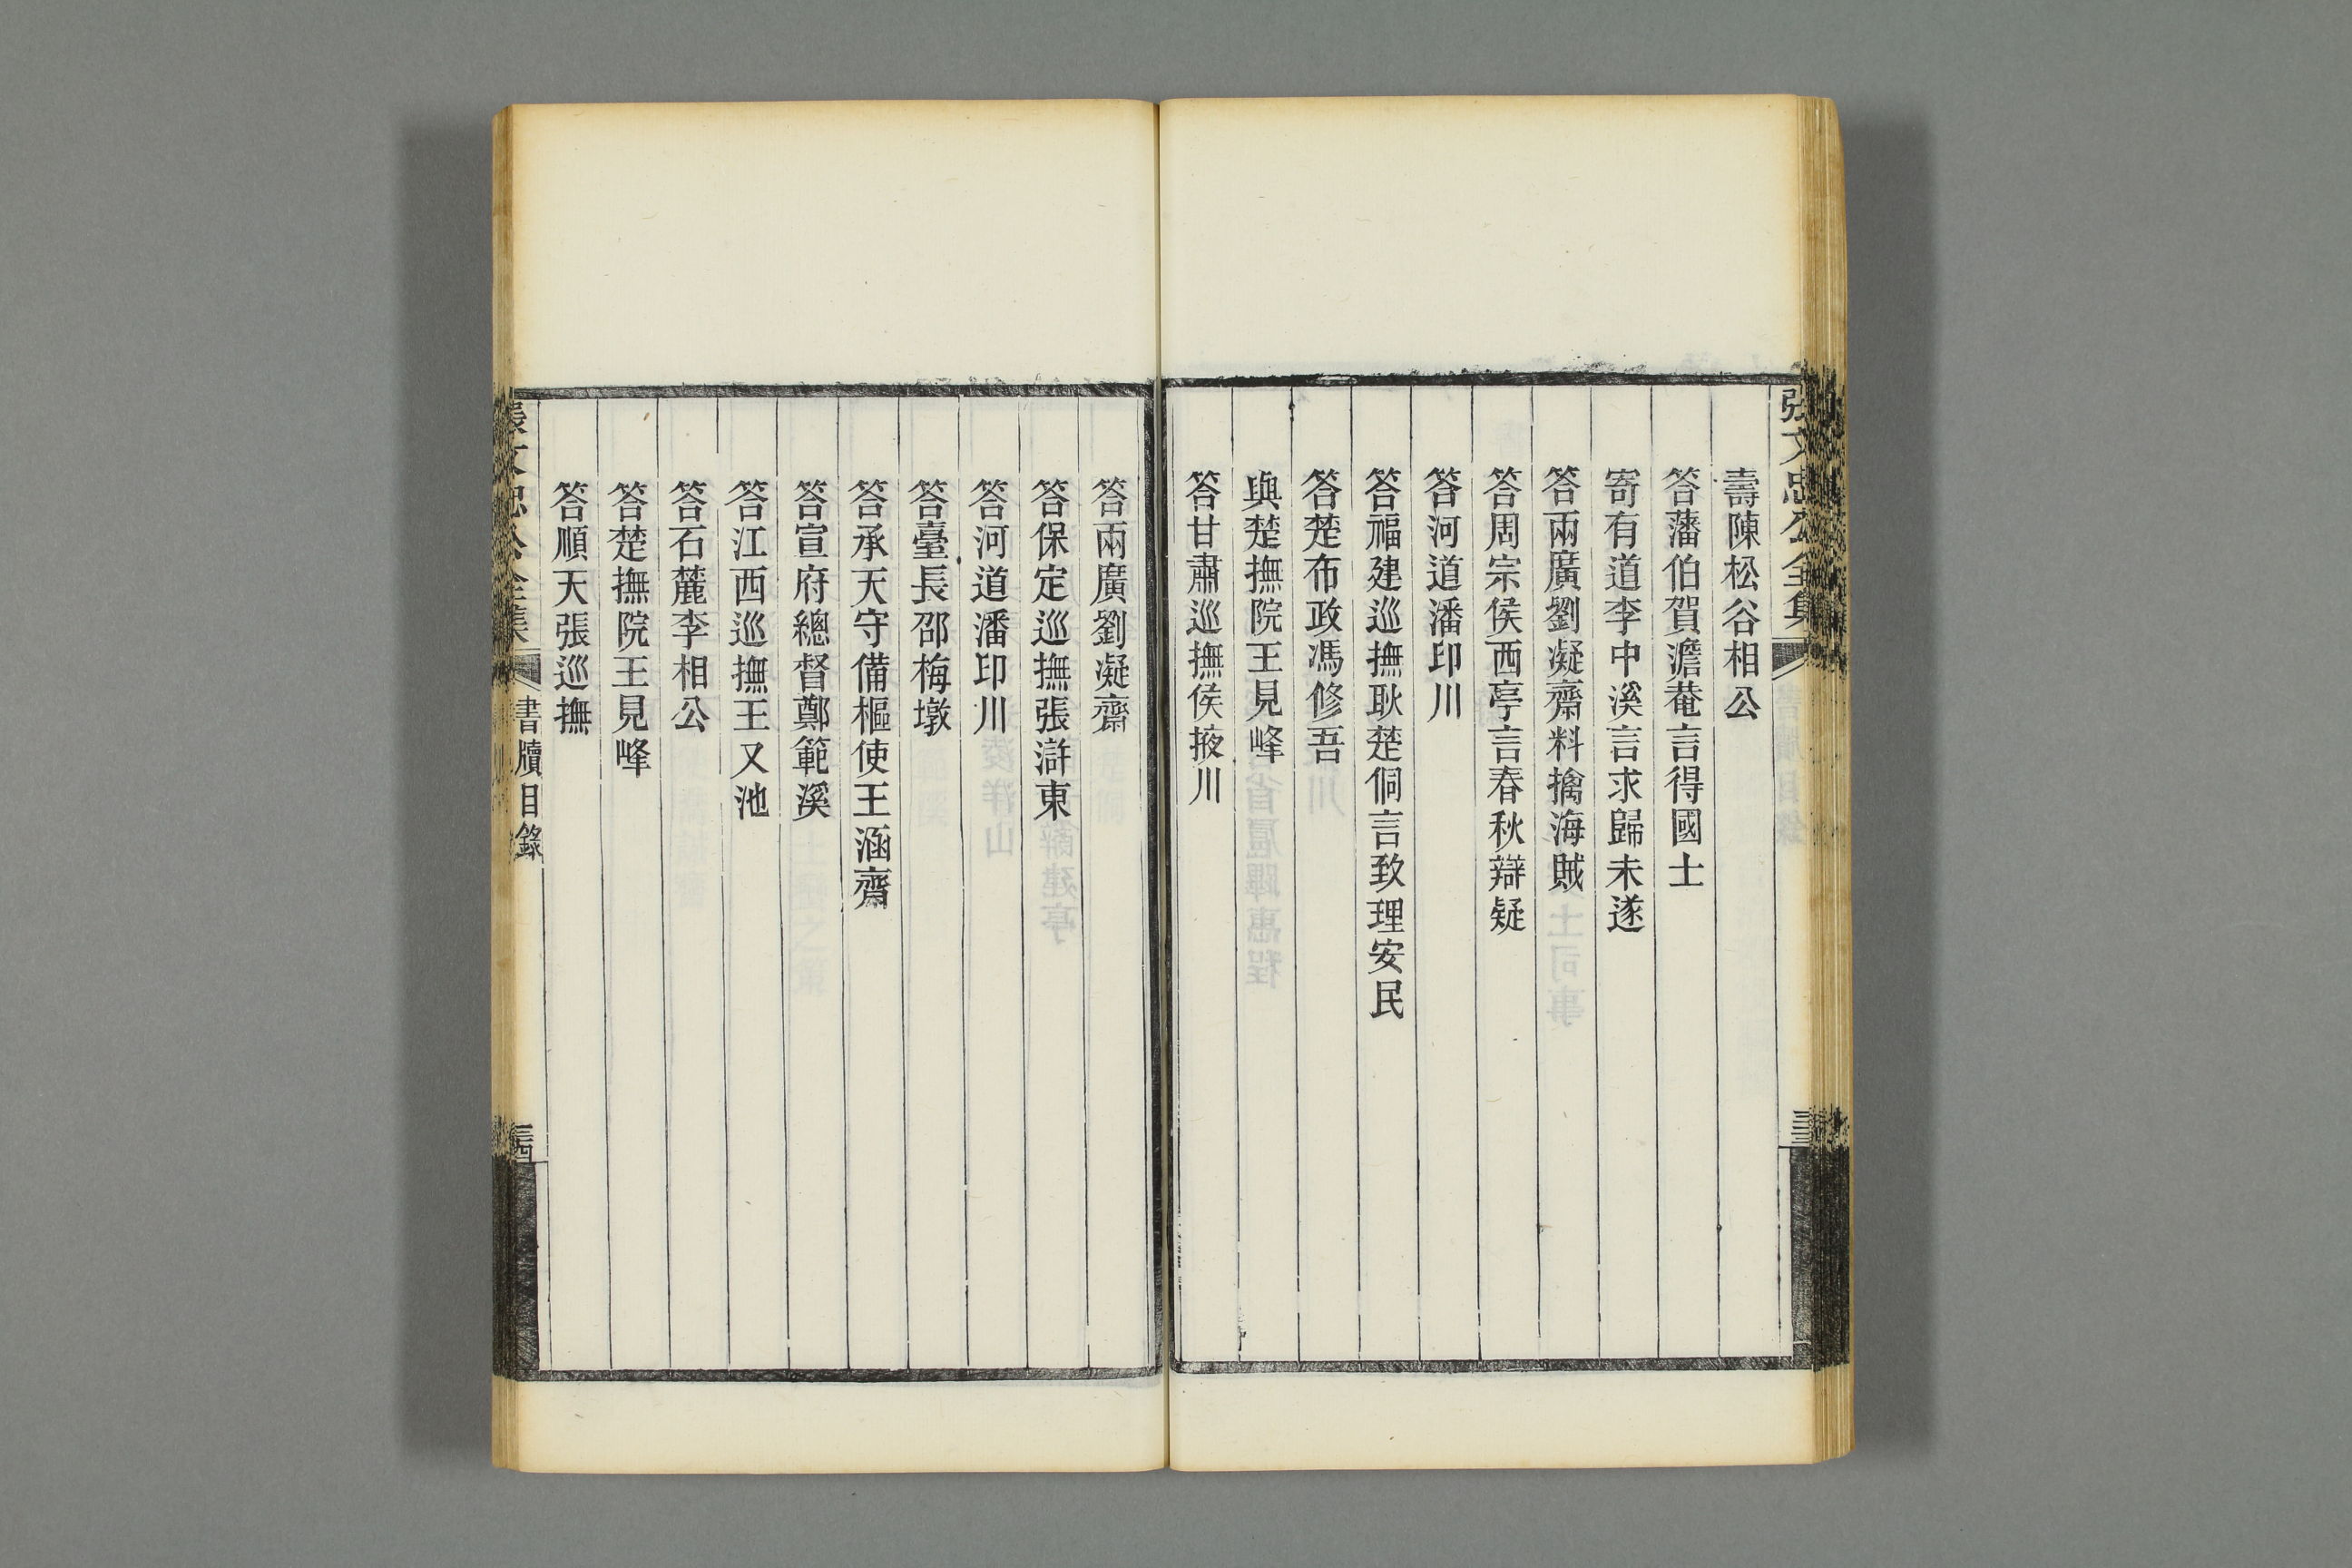 張文忠公全集
壽陳松谷相公
答藩伯賀澹菴言得國士
寄有道李中溪言求歸未遂
答兩廣劉凝齋料擒海賊
答周宗侯西亭言春秋辯疑
答河道潘印川
答福建巡撫耿楚侗言致理安民
答楚布政馮修吾
與楚撫院王見峰
答甘肅巡撫侯掖川
答兩廣劉凝齋
答保定巡撫張滸東
答河道潘印川
答臺長邵梅墩
答承天守備樞使王涵齋
答宣府總督鄭範溪
答江西巡撫王又池
答石麓李相公
答楚撫院王見峰
答順天張巡撫
張文忠公全集 書牘目錄